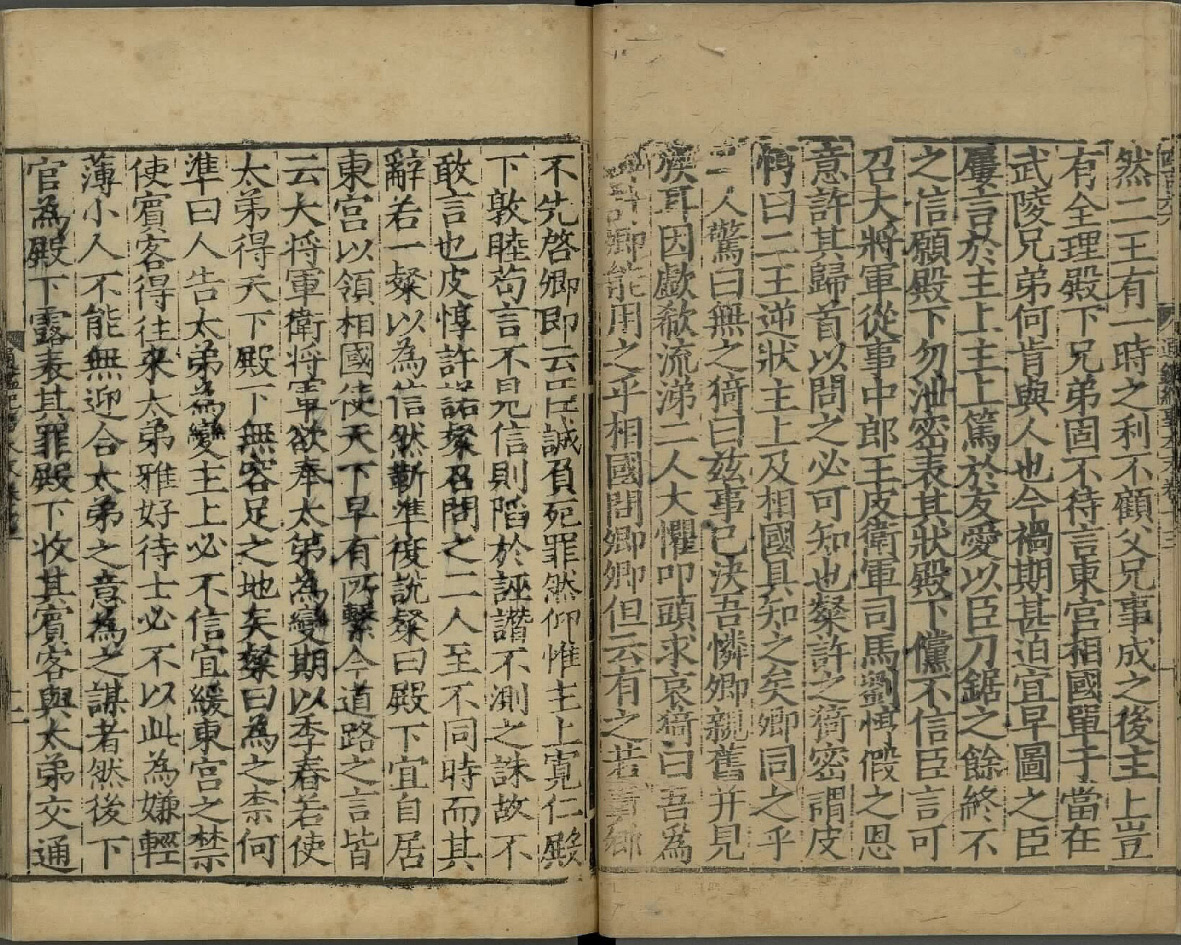 然二王有一時之利不顧父兄事成之後主上豈
有全理殿下兄弟固不待言東宮相國單于當在
武陵兄弟何肯與人也今禍期甚迫宜早圖之臣
屢言於主上主上篤於友愛以臣刀鋸之餘終不
之信願殿下勿泄密表其狀殿下儻不信臣言可
召大將軍從事中郎王皮衛軍司馬劉惇假之恩
意許其歸首以問之必可知也粲許之猗密謂皮
惇曰二王逆狀主上及相國具知之矣卿同之乎
二人驚曰無之猗曰茲事已決吾憐卿親舊并見
族耳因歔欷流涕二人大懼叩頭求哀猗曰吾為
卿計卿能用之乎相國問卿卿但云有之若責卿
不先啓卿即云臣誠負死罪然仰惟主上寛仁殿
下敦睦苟言不見信則陷於誣譖不測之誅故不
敢言也皮惇許諾粲召問之二人至不同時而其
辭若一粲以為信然靳準復說粲曰殿下宜自居
東宮以領相國使天下早有所繫今道路之言皆
云大將軍衛將軍欲奉太弟為變期以季春若使
太弟得天下殿下無容足之地矣粲曰為之柰何
準曰人告太弟為變主上必不信宜緩東宮之禁
使賓客得往來太弟雅好待士必不以此為嫌輕
薄小人不能無迎合太弟之意為之謀者然後下
官為殿下露表其罪殿下收其賓客與太弟交通